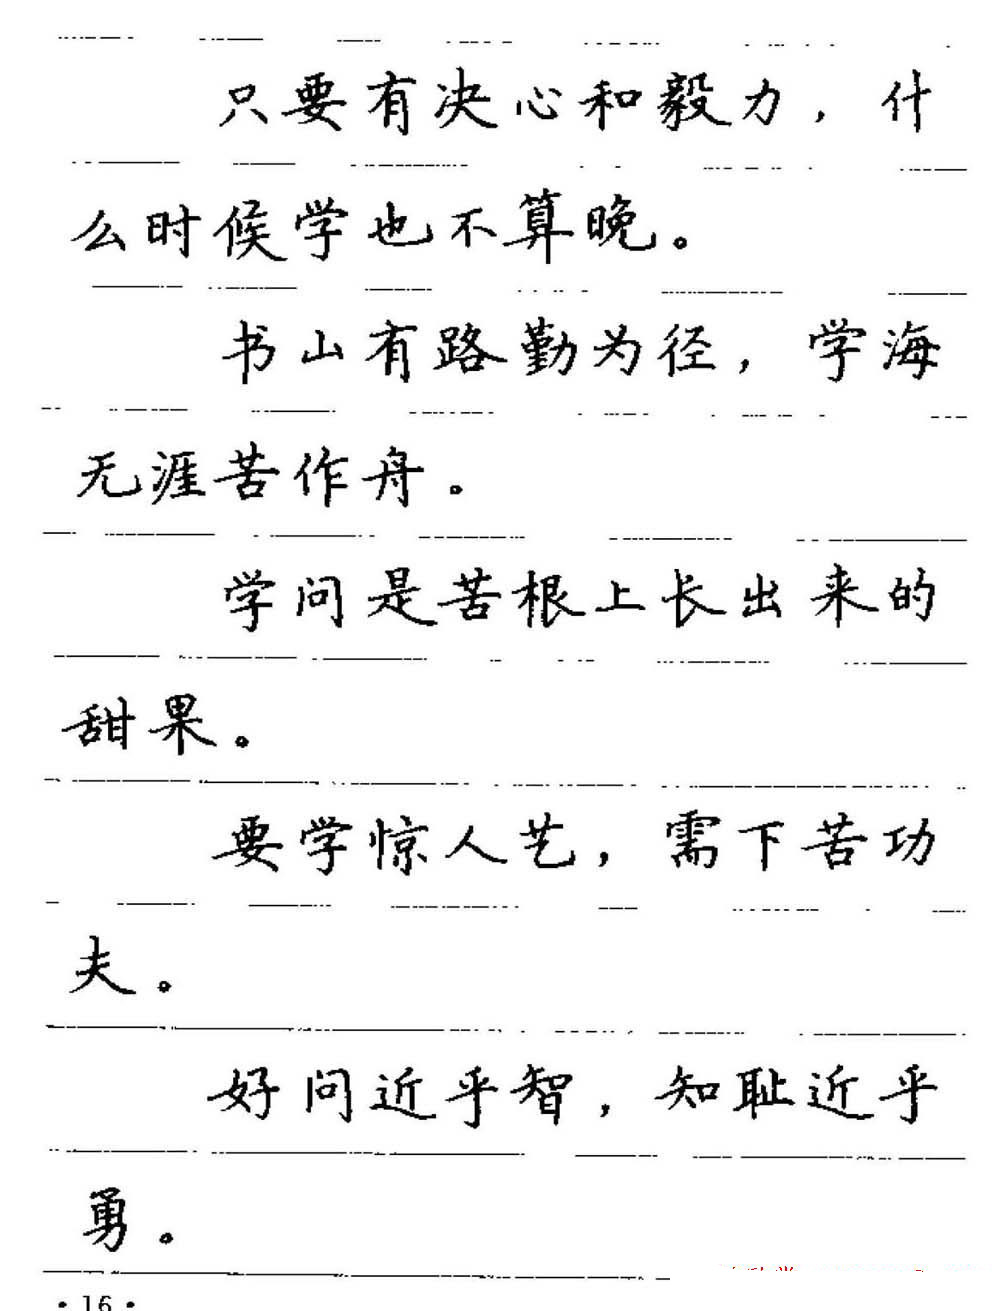 只要有决心和毅力，什
么时候学也不算晚。
书山有路勤为径，学海
无涯苦作舟。
学问是苦根上长出来的
甜果。
要学惊人艺，需下苦功
夫。
好问近乎智，知耻近乎
勇。
·16·